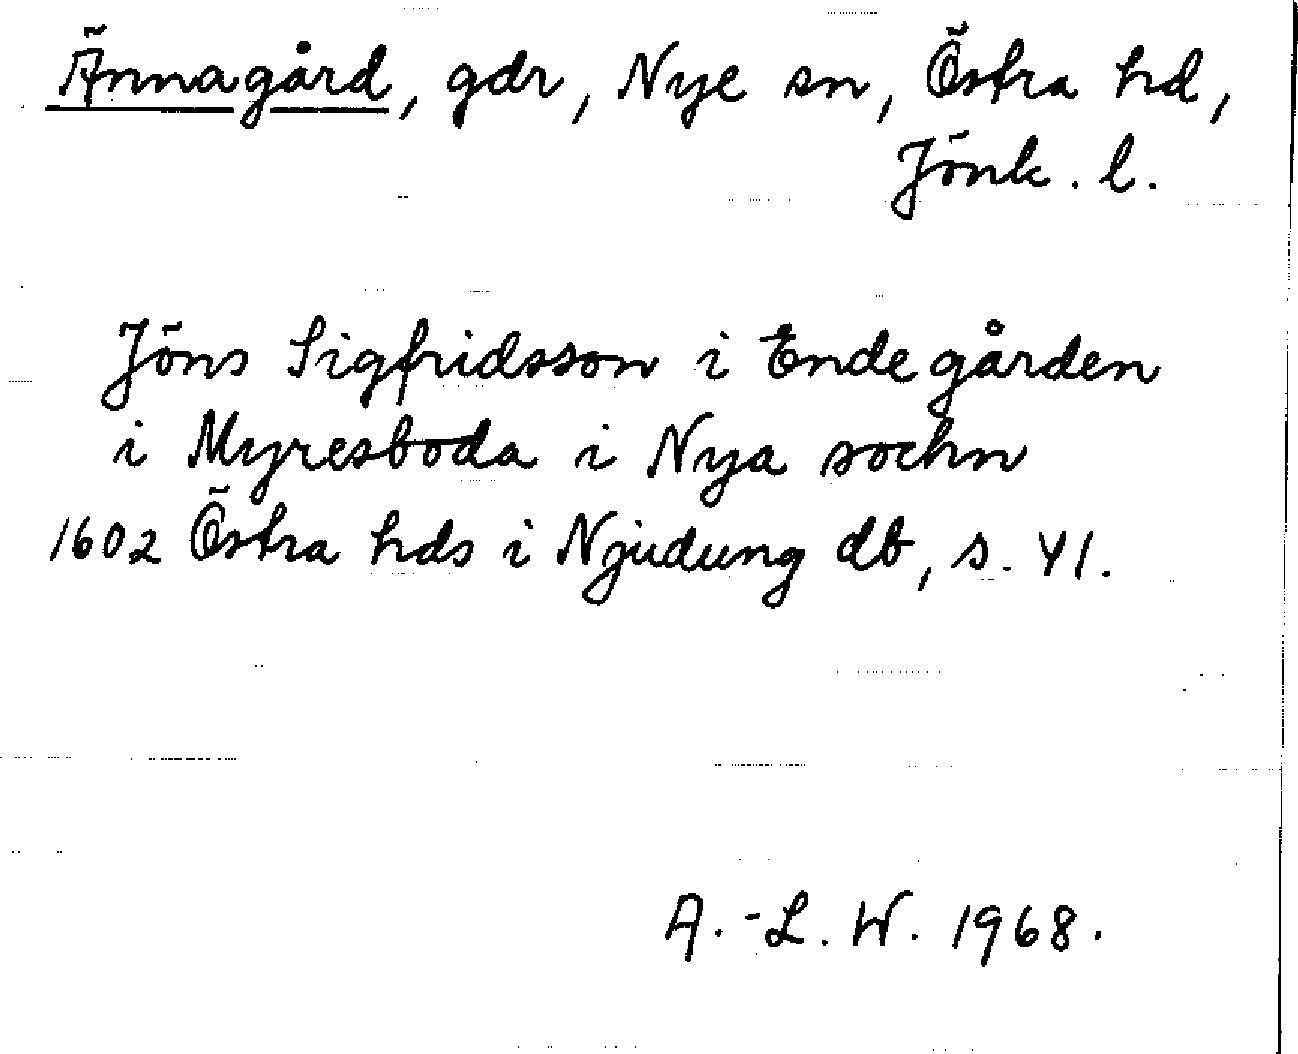 Ännagård, gdr, Nye sn, Östra hd,
Jönk. l.
Jöns Sigfridsson i Endegården
i Myresboda i Nya sochn
1602 Östra hds i Njudung db, s. 41.
A.-L. W. 1968.